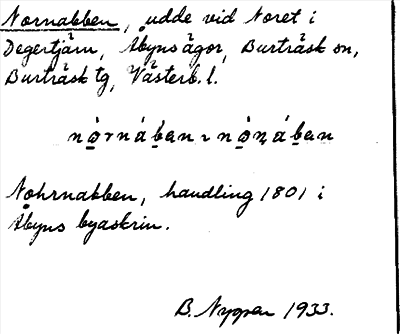 Nornabben, udde vid Noret i
Degertjärn, Åbyns ägor, Burträsk sn,
Burträsk tg, Västerb. l.
nò̱rnáḇan ~ nò̱ṇáḇan
Nohrnabben, handling 1801 i
Åbyns byaskrin.
B. Nygren 1933.